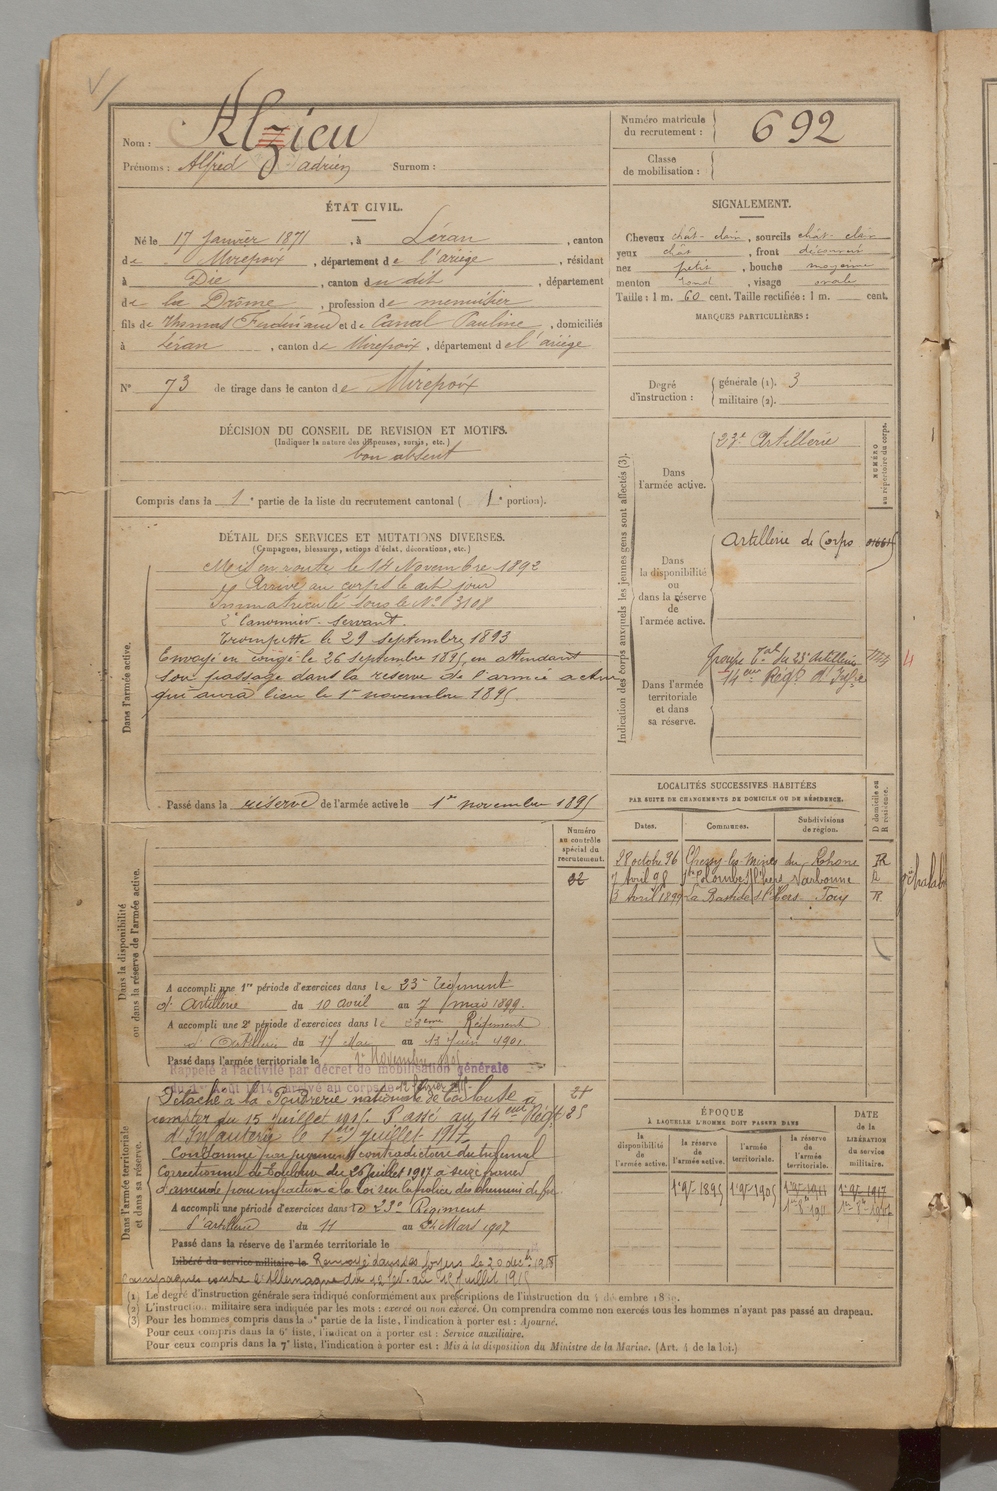 Nom : Alzieu
Prénoms : Alfred Adrien Surnom :
Numéro matricule du recrutement : 692
Classe de mobilisation :
ÉTAT CIVIL.
Né le 17 Janvier 1871, à Léran, canton
de Mirepoix, département de l'ariège, résidant
à Die, canton du dit, département
de la Drôme, profession de menuisier
fils de Thomas Ferdinand et de Canal Pauline, domiciliés
à Léran, canton de Mirepoix, département de l'ariège
N° 73 de tirage dans le canton de Mirepoix
SIGNALEMENT.
Cheveux chât-clair, sourcils chât-clair
yeux chât, front découvert
nez petit, bouche moyenne
menton rond, visage ovale
Taille : 1 m. 60 cent. Taille rectifiée : 1 m. cent.
MARQUES PARTICULIÈRES :
Degré d'instruction : générale (1). 3
militaire (2).
DÉCISION DU CONSEIL DE REVISION ET MOTIFS.
(Indiquer la nature des dispenses, sursis, etc.)
bon absent
Compris dans la 1e partie de la liste du recrutement cantonal ( 1e portion).
DÉTAIL DES SERVICES ET MUTATIONS DIVERSES.
(Campagnes, blessures, actions d'éclat, décorations, etc.)
Dans l'armée active.
Mis en route le 14 Novembre 1892
Arrivé au corps le dit jour
Immatriculé sous le N° 3108
2e Canonnier-servant.
Trompette le 29 septembre 1893
Envoyé en congé le 26 septembre 1895 en attendant
son passage dans la réserve de l'armée active
qui aura lieu le 1er novembre 1895.
Passé dans la réserve de l'armée active le 1er novembre 1895
Indication des corps auxquels les jeunes gens sont affectés (3).
NUMÉRO au répertoire du corps.
Dans l'armée active.
23e Artillerie
Dans la disponibilité ou dans la réserve de l'armée active.
Artillerie de Corps
Dans l'armée territoriale et dans sa réserve.
Groupe tal du 23e Artillerie
14eme Régt d'Infie
LOCALITÉS SUCCESSIVES HABITÉES
PAR SUITE DE CHANGEMENTS DE DOMICILE OU DE RÉSIDENCE.
Dates. Communes. Subdivisions de région. D domicile ou R résidence.
28 octobre 96 Chessy-les-Mines du Rhône R
7 Avril 98 Ste Colombe s/l'hers Narbonne R
3 Avril 1899 La Bastide s/l'Hers Foix R
Numéro au contrôle spécial du recrutement.
Dans la disponibilité ou dans la réserve de l'armée active.
A accompli une 1re période d'exercices dans le 23e régiment
d'Artillerie du 10 avril au 7 mai 1899.
A accompli une 2e période d'exercices dans le 23eme Régiment
d'Artillerie du 17 Mai au 13 juin 1901
Passé dans l'armée territoriale le 1er Novembre 1905
Rappelé à l'activité par décret de mobilisation générale
du 1er Août 1914, arrivé au corps le 12 février 1915
Dans l'armée territoriale et dans sa réserve.
Détaché à la Poudrerie nationale de Toulouse à
compter du 15 Juillet 1915. Passé au 14eme Régt
d'Infanterie le 1er juillet 1917
Condamné par jugement contradictoire du tribunal
Correctionnel de Toulouse du 26 Juillet 1917 à seize francs
d'amende pour infraction à la loi sur la police des chemins de fer
A accompli une période d'exercices dans le 23e Régiment
d'artillerie du 11 au 24 Mars 1907
Passé dans la réserve de l'armée territoriale le
Libéré du service militaire le Renvoyé dans ses foyers le 20 décbre 1918
Campagnes contre l'Allemagne du 12 fév. au 15 Juillet 1915
ÉPOQUE
À LAQUELLE L'HOMME DOIT PASSER DANS
la disponibilité de l'armée active. la réserve de l'armée active. l'armée territoriale. la réserve de l'armée territoriale.
DATE de la LIBÉRATION du service militaire.
1er 9bre 1895 1er 9bre 1905 1er 9bre 1911 1er 9bre 1917
(1) Le degré d'instruction générale sera indiqué conformément aux prescriptions de l'instruction du 4 décembre 1889.
(2) L'instruction militaire sera indiquée par les mots : exercé ou non exercé. On comprendra comme non exercés tous les hommes n'ayant pas passé au drapeau.
(3) Pour les hommes compris dans la 5e partie de la liste, l'indication à porter est : Ajourné.
Pour ceux compris dans la 6e liste, l'indication à porter est : Service auxiliaire.
Pour ceux compris dans la 7e liste, l'indication à porter est : Mis à la disposition du Ministre de la Marine. (Art. 4 de la loi.)